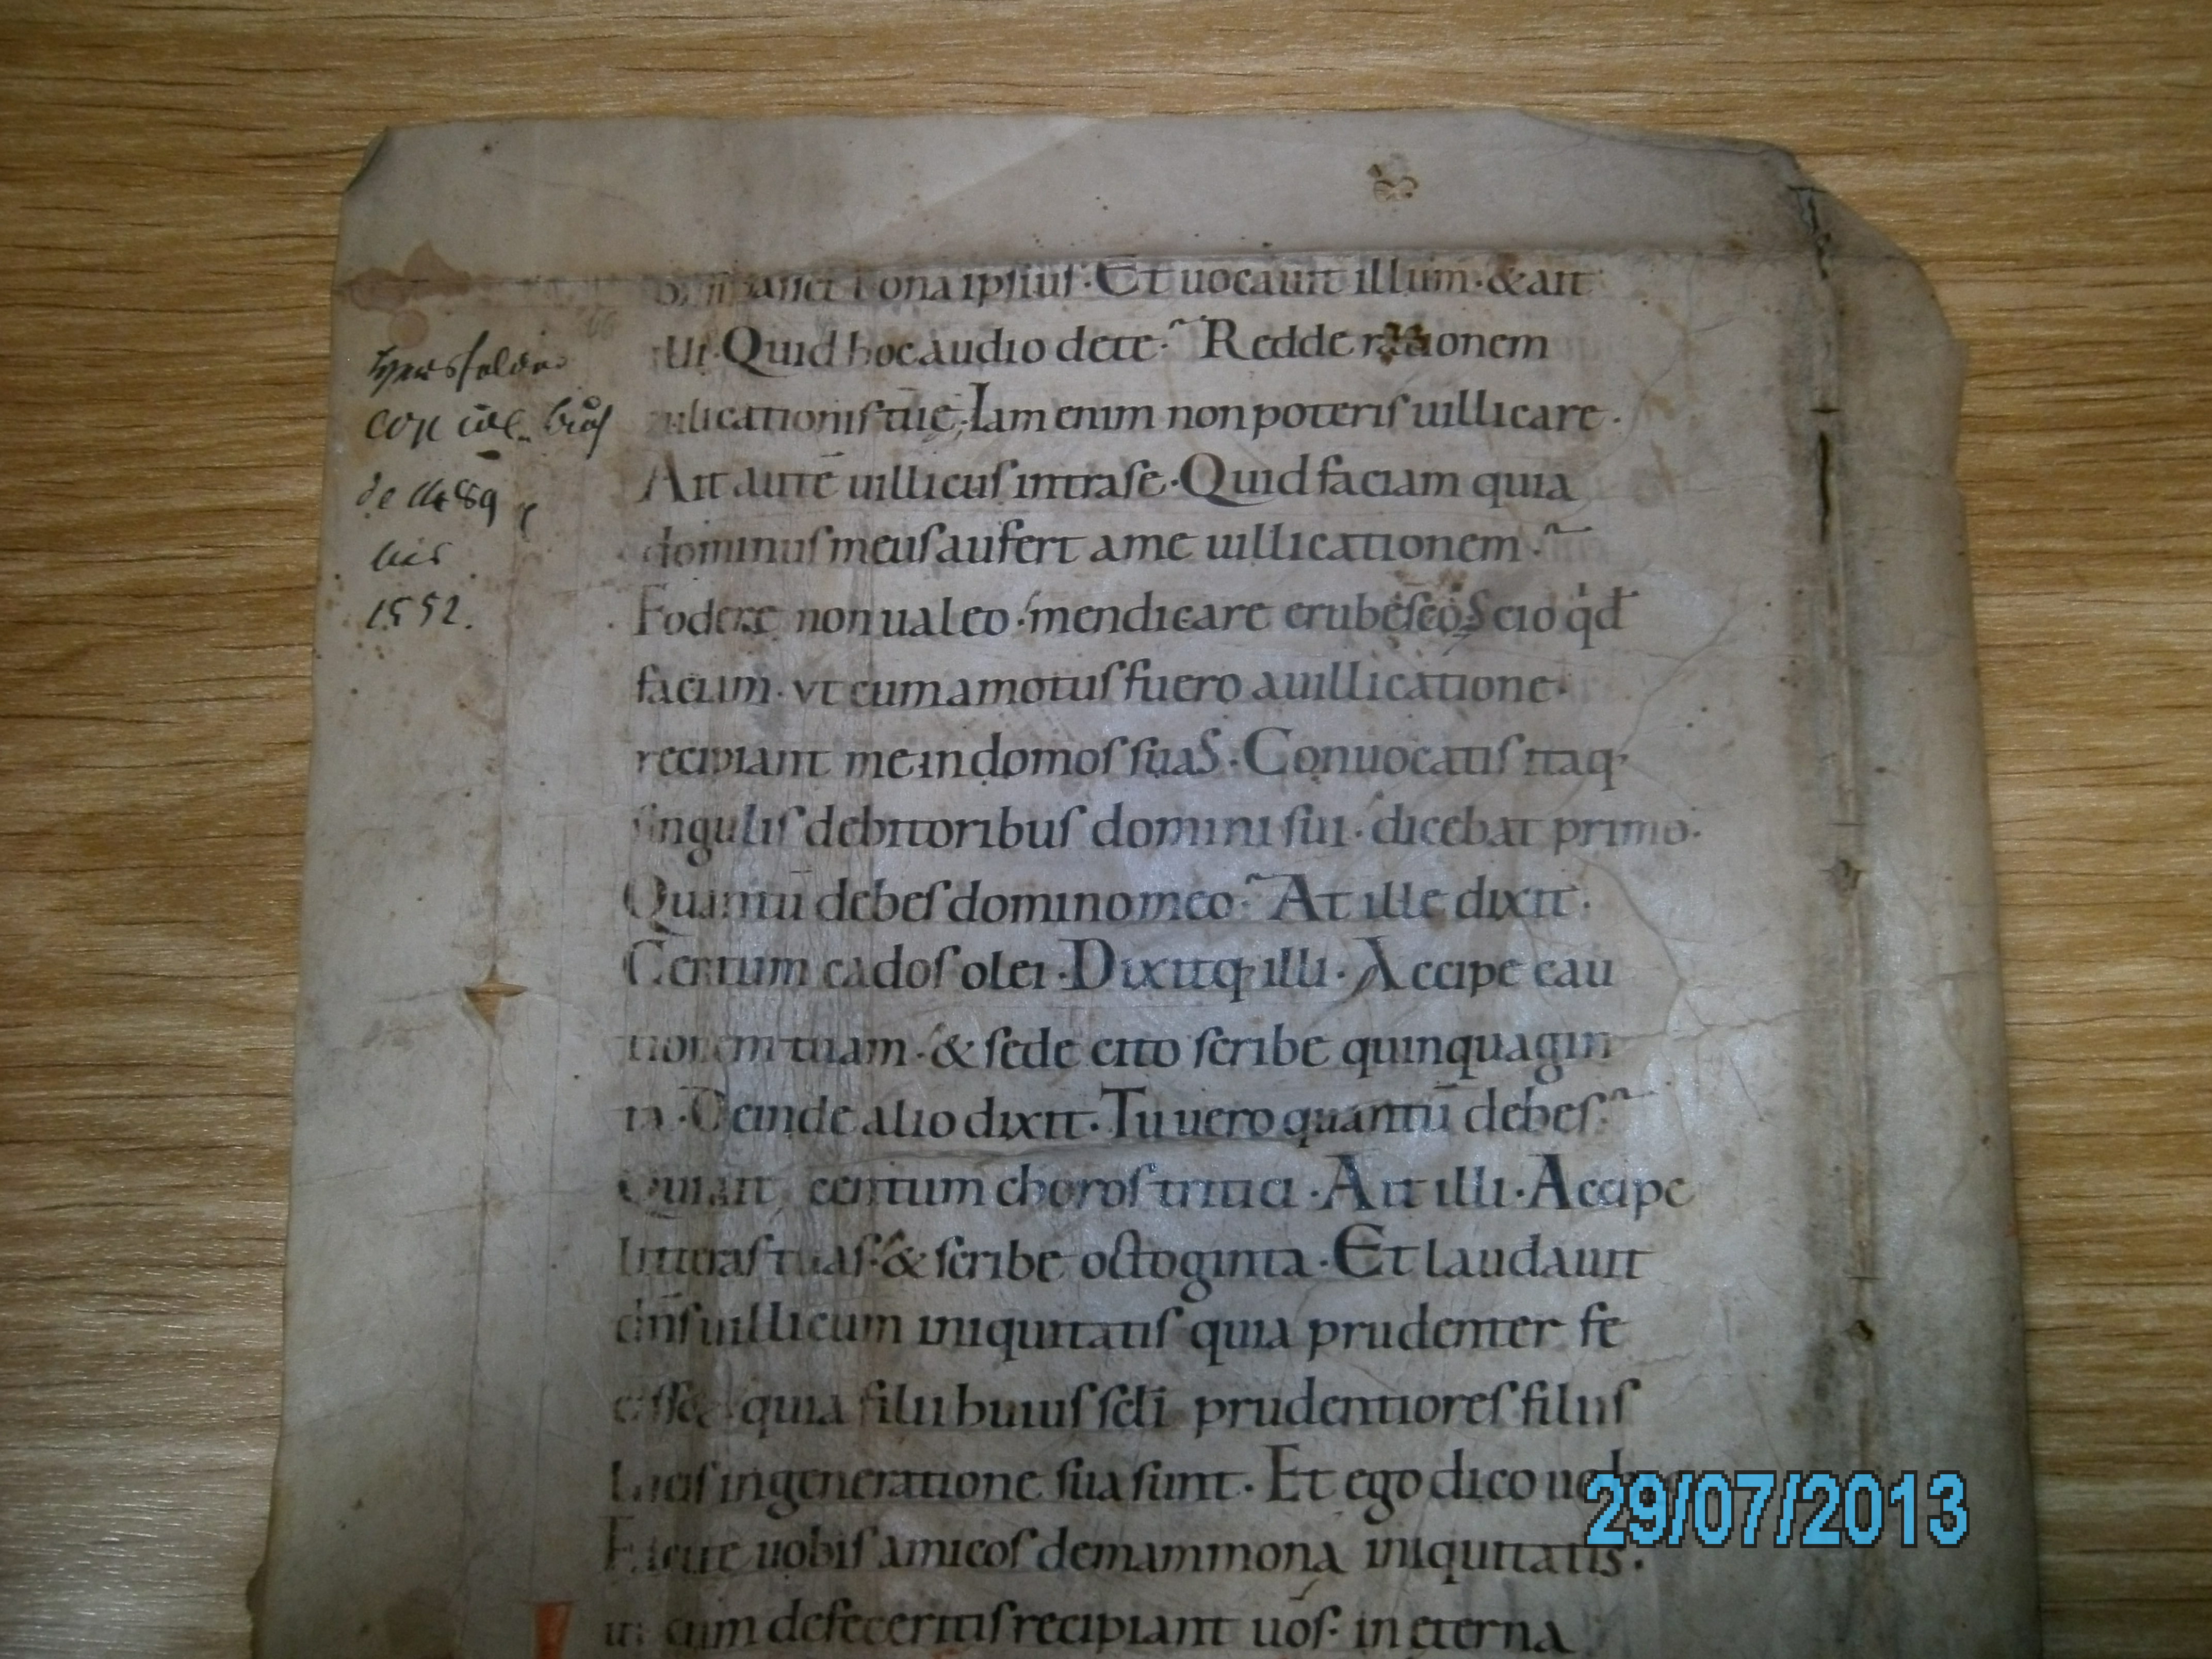 bona ipsius · Et uocauit illum · & ait
illi · Quid hoc audio de te · Redde rationem
uilicationis tuę · Iam enim non poteris uillicare ·
Ait autē uillicus intra se · Quid faciam quia
dominus meus aufert a me uillicationem ·
Fodere non ualeo · mendicare erubesco · Scio qd
faciam · vt cum amotus fuero a uillicatione ·
recipiant me in domos suas · Conuocatis itaq·
singulis debitoribus domini sui · dicebat primo ·
Quantū debes domino meo · At ille dixit ·
Centum cados olei · Dixitq· illi · Accipe cau
tionem tuam · & sede cito scribe quinquagin
ta · Deinde alio dixit · Tu uero quantū debes ·
Qui ait centum choros tritici · Ait illi · Accipe
litteras tuas · & scribe octoginta · Et laudauit
dn̄s uillicum iniquitatis quia prudenter fe
cisset quia filii huius scłi prudentiores filiis
lucis in generatione sua sunt · Et ego dico
Facite uobis amicos de mammona iniquitatis ·
ut cum defeceritis recipiant uos · in ęterna
de 1489
bis
1552.
29/07/2013